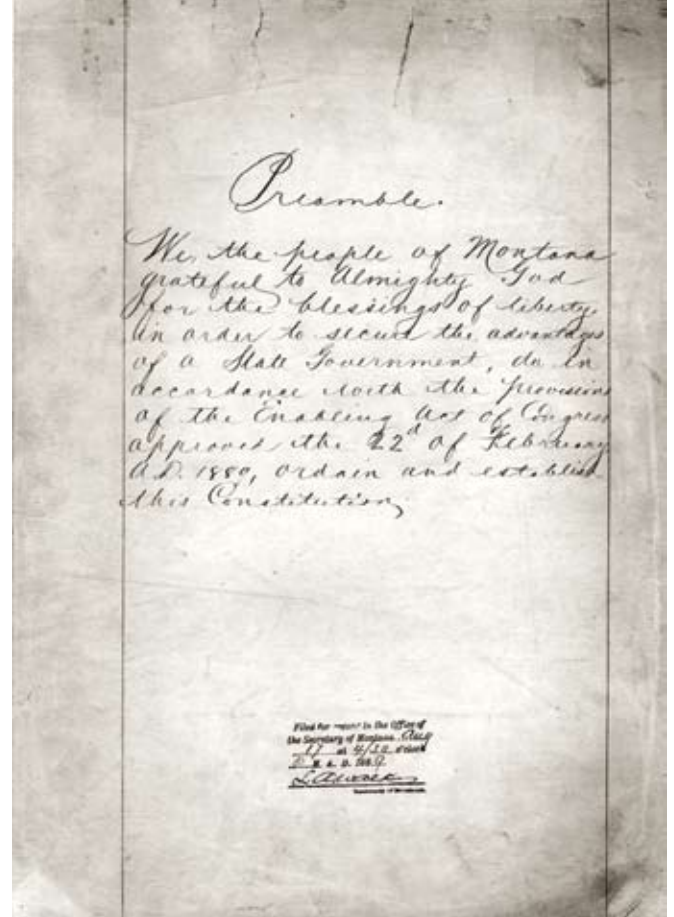 Preamble.
We, the people of Montana
grateful to Almighty God
for the blessings of liberty
in order to secure the advantages
of a State Government, do in
accordance with the provisions
of the Enabling Act of Congress
approved the 22d of February
A.D. 1889, ordain and establish
this Constitution,
Filed for record in the Office of
the Secretary of Montana Aug
17 at 4/30 o'clock
P M. A. D. 1889